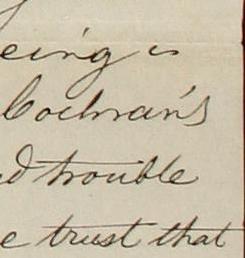 eing is
Cochran's
d trouble
e trust that